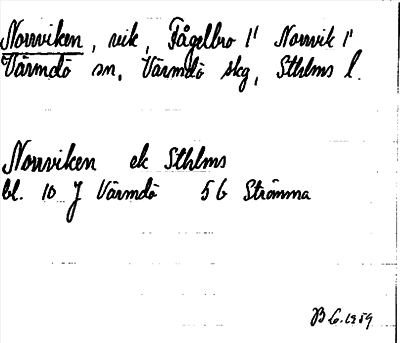 Norrviken, vik, Fågelbro 1¹ Norrvik 1¹
Värmdö sn, Värmdö skg, Sthlms l.
Norrviken ek Sthlms
bl. 10 J Värmdö 5 b Strömma
B G. 1959